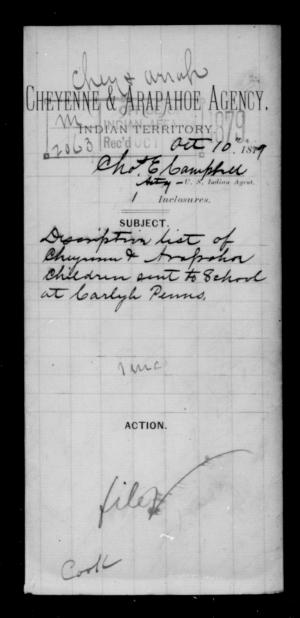 Chey & Arrah
CHEYENNE & ARAPAHOE AGENCY,
INDIAN TERRITORY,
M
2063
INDIAN
Rec'd OCT
1879
Oct 10, 1879
Chas E Campbell
Actg - U. S. Indian Agent.
1 Inclosures.
SUBJECT.
Descriptive list of
Cheyenne & Arapahoe
Children sent to School
at Carlyle Penns.
1 inc
ACTION.
file
Cook